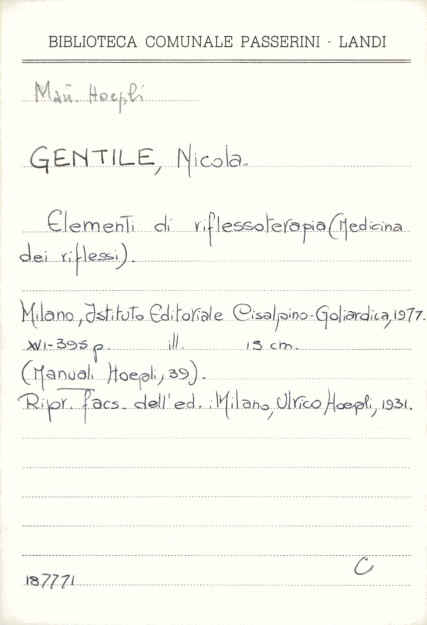 BIBLIOTECA COMUNALE PASSERINI - LANDI
Man. Hoepli
GENTILE, Nicola.
Elementi di riflessoterapia (Medicina
dei riflessi).
Milano, Istituto Editoriale Cisalpino-Goliardica, 1977.
XVI-395 p. ill. 15 cm.
(Manuali Hoepli, 39).
Ripr. facs. dell'ed.: Milano, Ulrico Hoepli, 1931.
C
187771